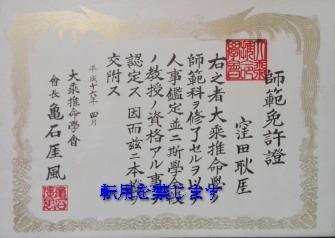 師範免許證
窪田耿厓
右之者大乘推命學
師範科ヲ修了セルヲ以テ
人事鑑定並ニ斯學全般
ノ教授ノ資格アル事ヲ
認定ス因而茲ニ本證
交附ス
平成十六年四月
大乘推命學會
會長 亀石厓風
転用を禁じます